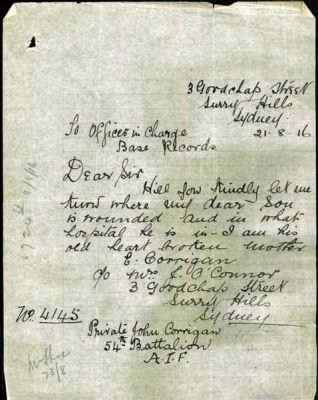 3 Goodchap Street
Surry Hills
Sydney
21-8-16
To Officer in Charge
Base Records
Dear Sir
Will you kindly let me
know where my dear Son
is wounded and in what
hospital he is in - I am his
old heart broken mother
E. Corrigan
c/o Mrs E O'Connor
3 Goodchap Street
Surry Hills
Sydney
No. 4145
Private John Corrigan
54th Battalion
A.I.F.
23/8